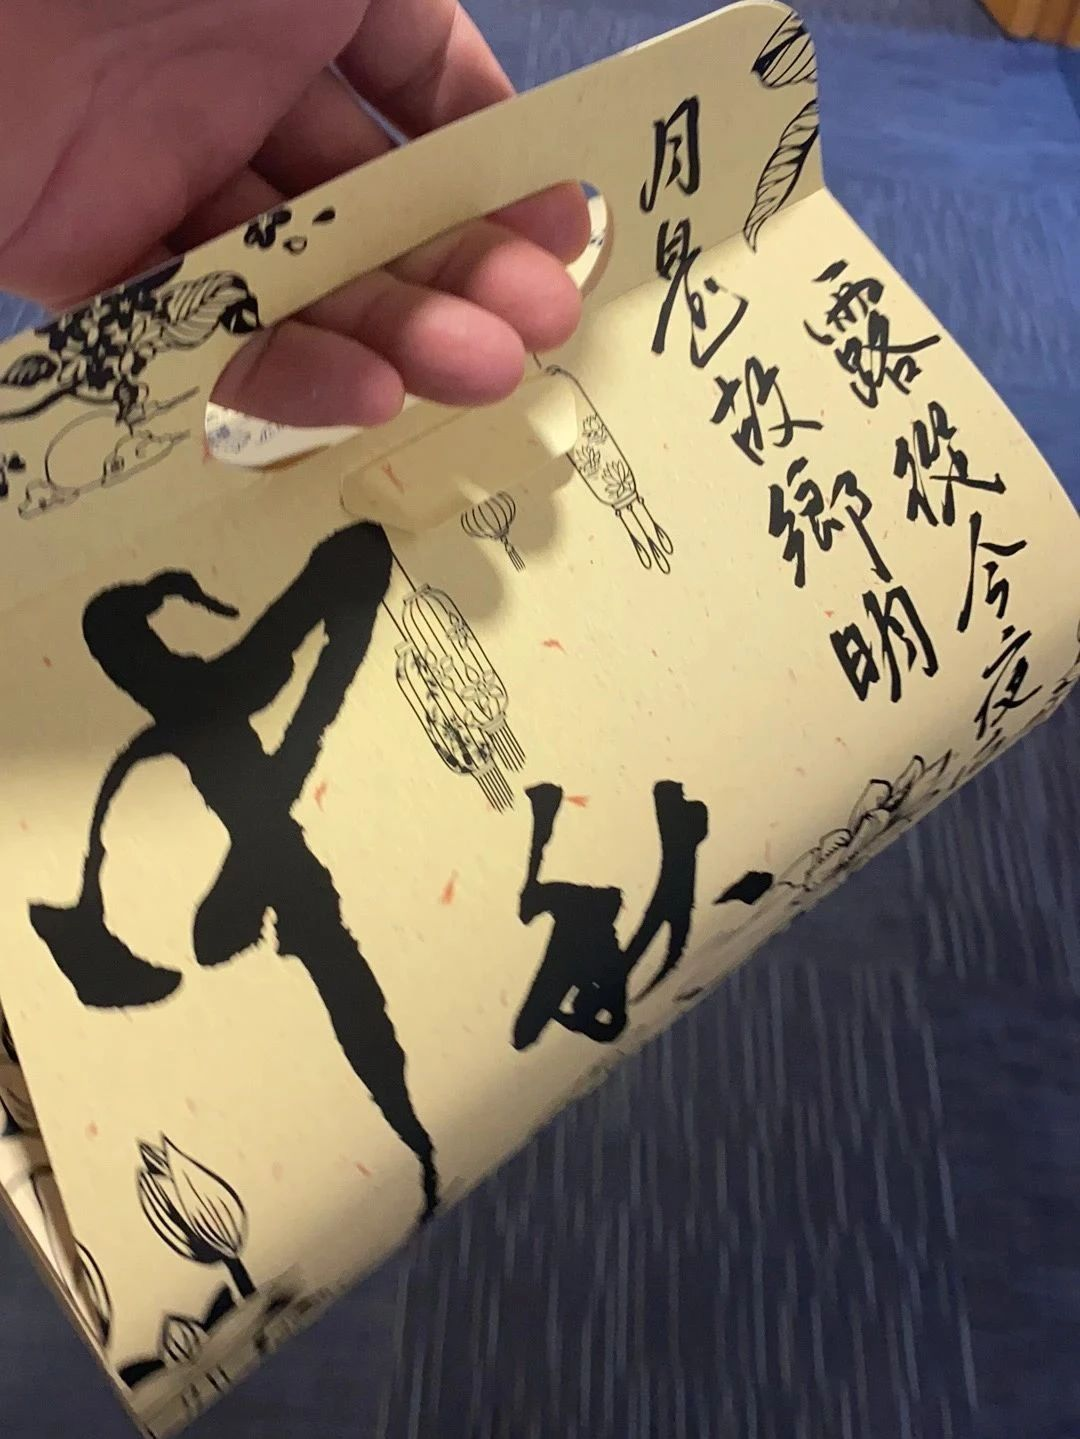 露從今夜
月是故鄉明
中秋